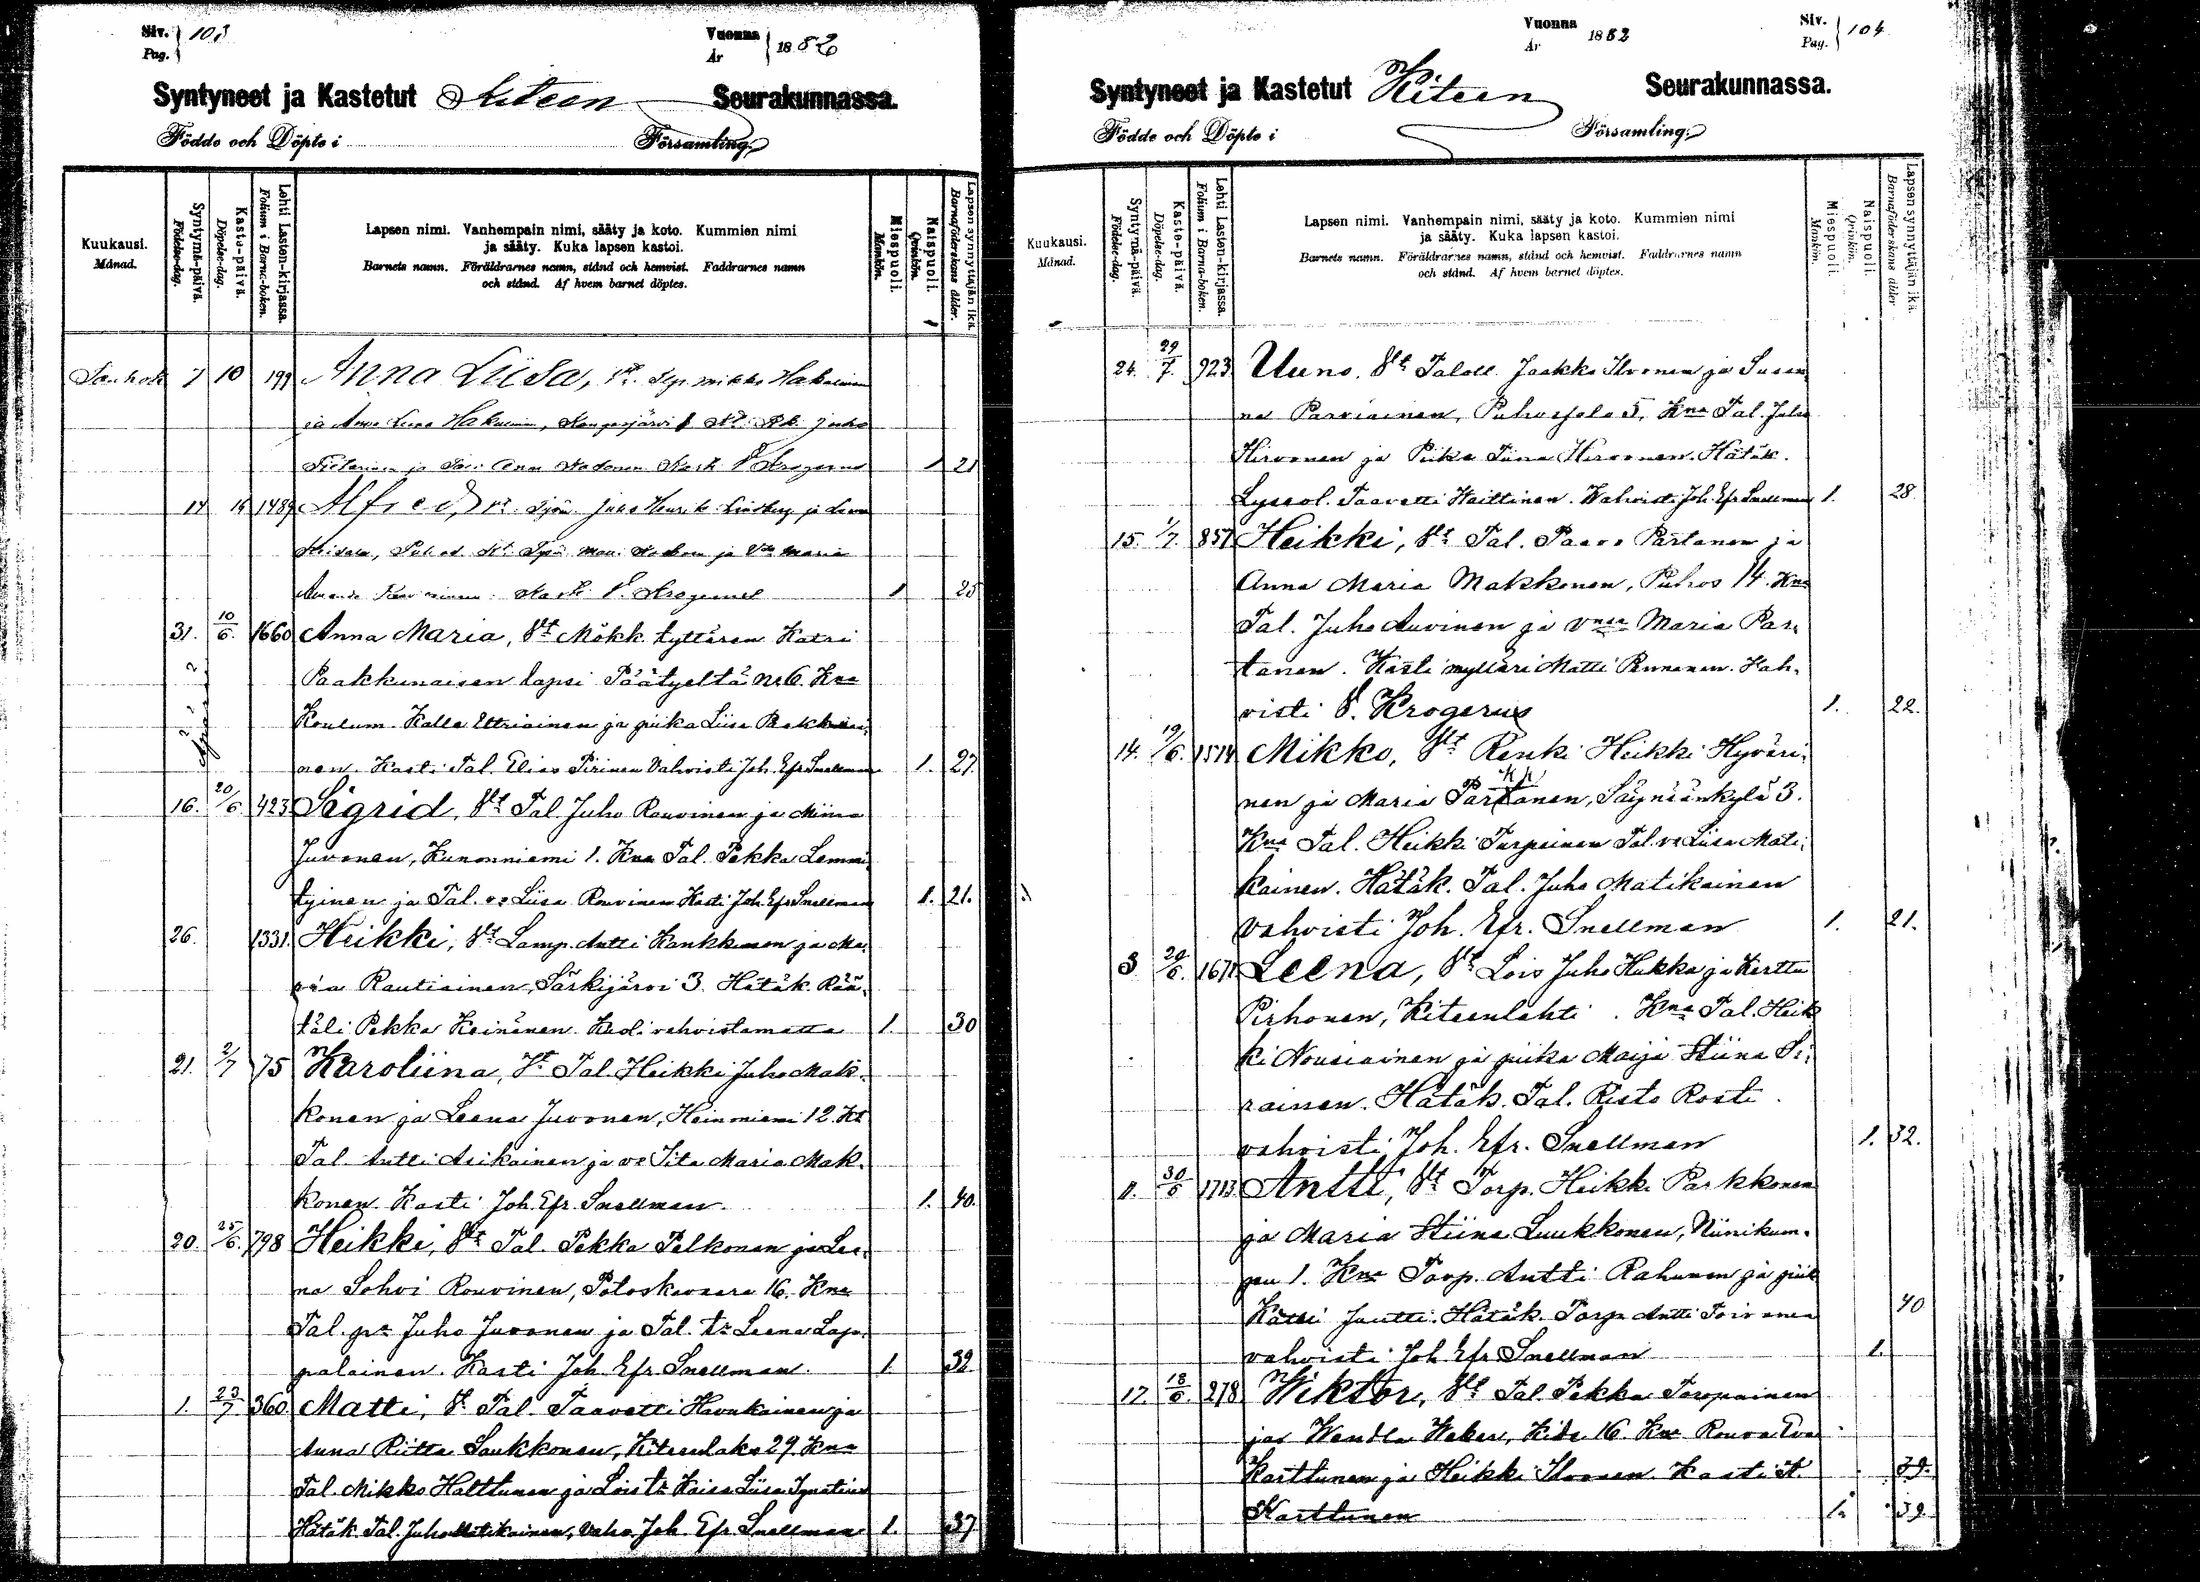 Siv. Pag. 103
Vuonna År 1882
Syntyneet ja Kastetut Kiteen Seurakunnassa.
Födde och Döpte i Församling.
Kuukausi. Månad.
Syntymä-päivä. Födelse-dag.
Kaste-päivä. Döpelse-dag.
Lehti Lasten-kirjassa. Folium i Barna-boken.
Lapsen nimi. Vanhempain nimi, sääty ja koto. Kummien nimi
ja sääty. Kuka lapsen kastoi.
Barnets namn. Föräldrarnes namn, stånd och hemvist. Faddrarnes namn
och stånd. Af hvem barnet döptes.
Miespuoli. Mankön.
Naispuoli. Qvinkön.
Lapsen synnyttäjän ikä. Barnaföderskans ålder.
Touko k 7 10 199 Anna Liisa, Mikko Hakulinen
ja Anna Hakulinen, Juho
ja Anna Kasti P. Krogerus 1 21
14 15 1489 Alfred, Juho Henrik Lindberg ja
ja Maria
Amanda Kasti P. Krogerus 1 25
31. 10/6. 1660 Anna Maria, Vt Mökk. tyttären Katri
Paakkunaisen lapsi Päätyeltä No 6. Kna
Koulum. Kalle Ettriainen ja piika Liisa Paakkunai-
nen. Kasti Tal. Elias Pirinen Vahvisti Joh. Efr Snellman 1. 27.
16. 20/6. 423 Sigrid, Vt Tal Juho Rouvinen ja Miina
Juvonen, Kunonniemi 1. Kna Tal. Pekka Lemmi-
tyinen ja Tal. vo Liisa Rouvinen Kasti Joh. Efr Snellman 1. 21.
26. 1331. Heikki, Vt Lamp. Antti Kankkunen ja Ma-
ria Rautiainen, Särkijärvi 3. Hätäk. Rää-
täli Pekka Keinänen. Kuoli vahvistamatta 1. 30
21. 2/7 75 Karoliina, Vt Tal. Heikki Juho Mak-
konen ja Leena Juvonen, Heinoniemi 12. Kt
Tal. Antti Asikainen ja vo Iita Maria Mak-
konen. Kasti Joh. Efr. Snellman. 1. 40.
20. 25/6. 798 Heikki, Vt Tal. Pekka Pelkonen ja Lee-
na Sohvi Rouvinen, Potoskavaara 16. Kna
Tal. pa Juho Juvonen ja Tal. tr Leena Lap-
palainen. Kasti Joh. Efr. Snellman. 1. 32
1. 23/7. 360 Matti, Vt Tal. Taavetti Havukainen ja
Anna Riitta Saukkonen, Kiteenlaks 29. Kna
Tal. Mikko Halttunen ja Lois tr Kaisa Liisa Ignatius
Hätäk. Tal. Juho Matikainen, vahv. Joh. Efr Snellman 1. 37
Vuonna År 1882
Siv. Pag. 104
Syntyneet ja Kastetut Kiteen Seurakunnassa.
Födde och Döpte i Församling.
Kuukausi. Månad.
Syntymä-päivä. Födelse-dag.
Kaste-päivä. Döpelse-dag.
Lehti Lasten-kirjassa. Folium i Barna-boken.
Lapsen nimi. Vanhempain nimi, sääty ja koto. Kummien nimi
ja sääty. Kuka lapsen kastoi.
Barnets namn. Föräldrarnes namn, stånd och hemvist. Faddrarnes namn
och stånd. Af hvem barnet döptes.
Miespuoli. Mankön.
Naispuoli. Qvinkön.
Lapsen synnyttäjän ikä. Barnaföderskans ålder.
24. 29/7. 923 Uuno, Vt Taloll. Jaakko Ilvonen ja Susan-
na Parviainen, Puhosjolo 5, Kna Tal. Juho
Hirvonen ja Piika Tiina Hirvonen. Hätäk.
Lyseol. Taavetti Haittinen. Vahvisti Joh. Efr Snellman 1. 28.
15. 1/7. 857 Heikki, Vt Tal. Paavo Partanen ja
Anna Maria Makkonen, Puhos 14. Kna
Tal. Juho Auvinen ja Maria Par-
tanen. Kasti mylläri Matti Pennanen. Vah-
visti P. Krogerus 1. 22.
14. 19/6. 1514 Mikko, Vt Renki Heikki Hyväri-
nen ja Maria Partanen, Säyniänkylä 3.
Kna Tal. Heikki Turpeinen Tal. vo Liisa Mati-
kainen. Hätäk. Tal. Juho Matikainen
vahvisti Joh. Efr. Snellman 1. 21.
3 20/6. 1671 Leena, Vt Lois Juho Hukka ja Kerttu
Pirhonen, Kiteenlahti. Kna Tal. Heik-
ki Nousiainen ja piika Maija Stiina Si-
rainen. Hätäk. Tal. Risto Rosti.
vahvisti Joh. Efr. Snellman 1. 32.
11. 30/6 1713 Antti, Vt Torp. Heikki Parkkonen
ja Maria Stiina Luukkonen, Niinikum-
pu 1. Kna Torp. Antti Rahunen ja piik
Katri Jantti. Hätäk. Torp. Antti Toivanen 40
vahvisti Joh Efr Snellman 1.
17. 18/6. 278. Wiktor, Vt Tal. Pekka Toropainen
ja Wendla Weber, Kide 16. Kna Rouva Eva
Karttunen ja Heikki Ilvonen. Kasti A. 39.
Karttunen 1. 39.